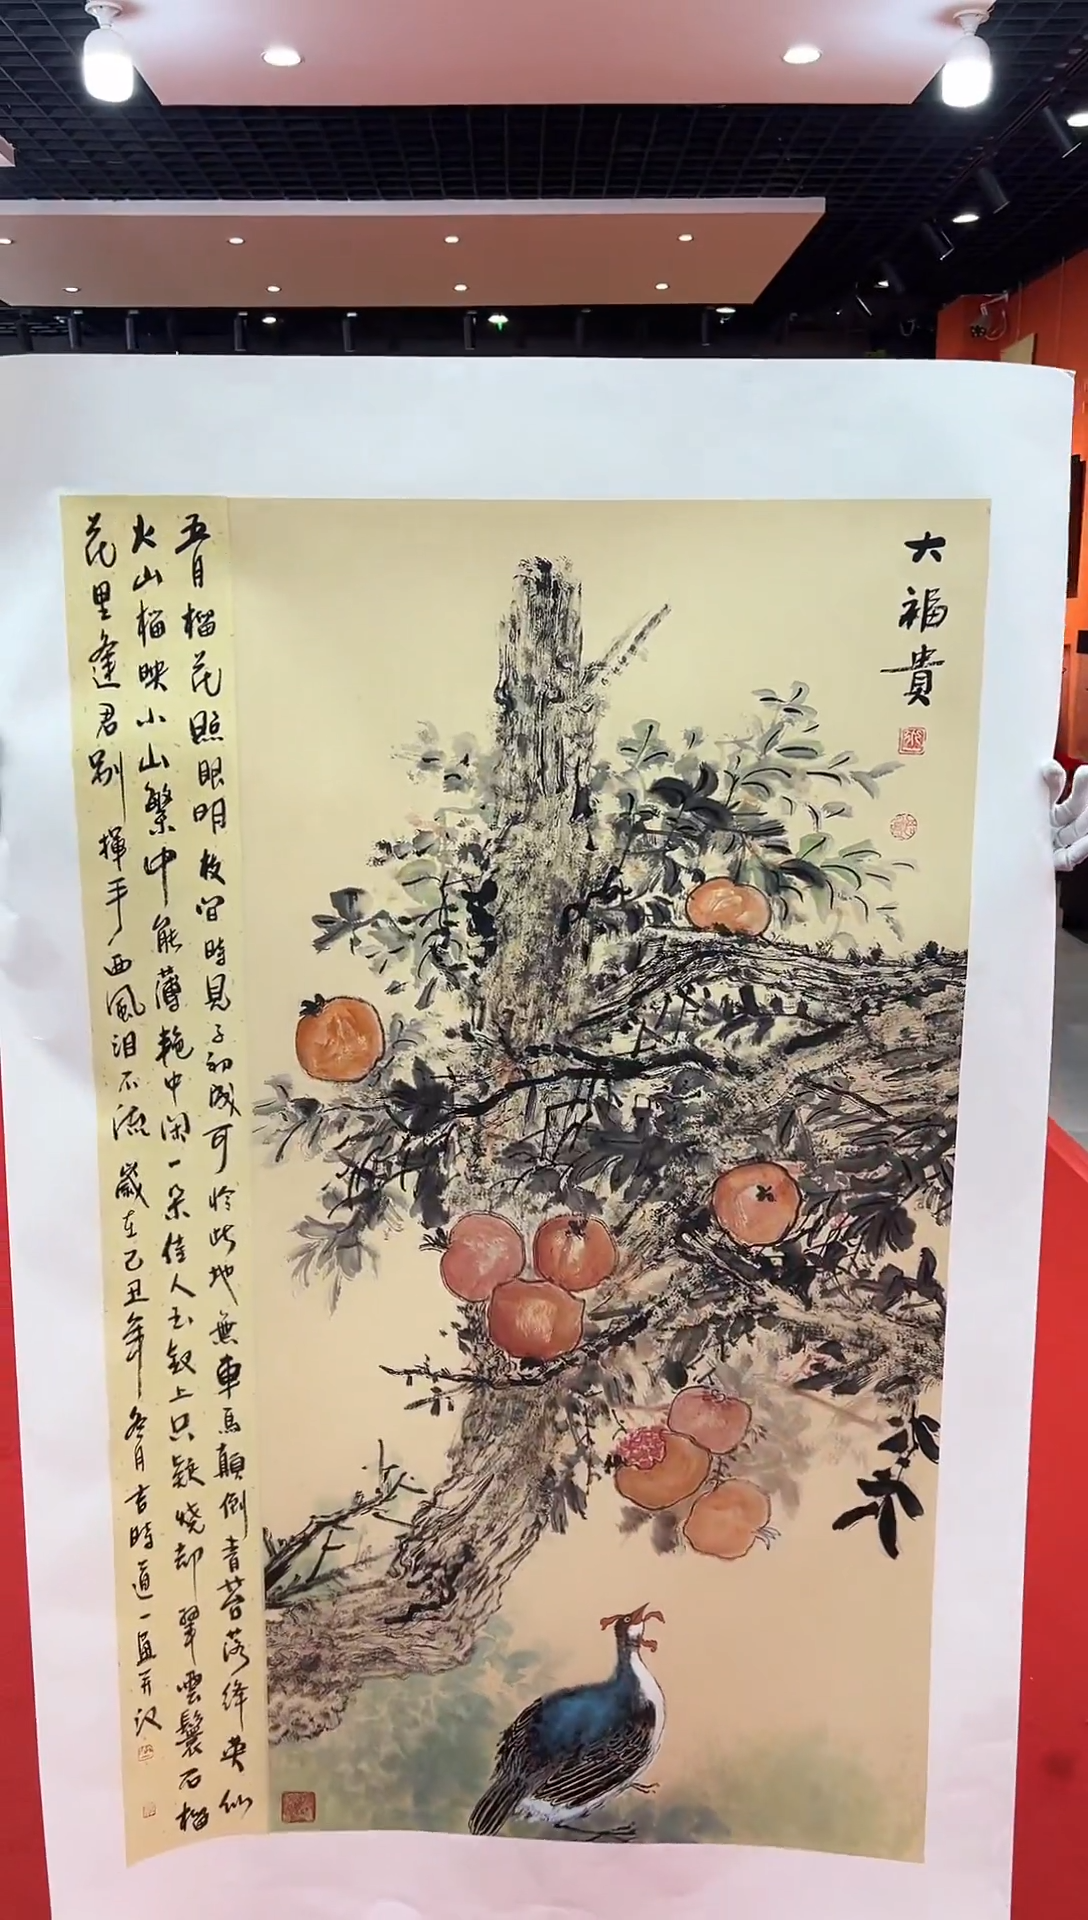 大福貴
五月榴花照眼明枝间時見子初成可怜此地無車馬顛倒青苔落绛英似
火山榴映小山繁中能薄艳中闲一朵佳人玉钗上只疑烧却翠雲鬟石榴
花里逢君别揮手西風泪不流歲在己丑年冬月吉時道一画并